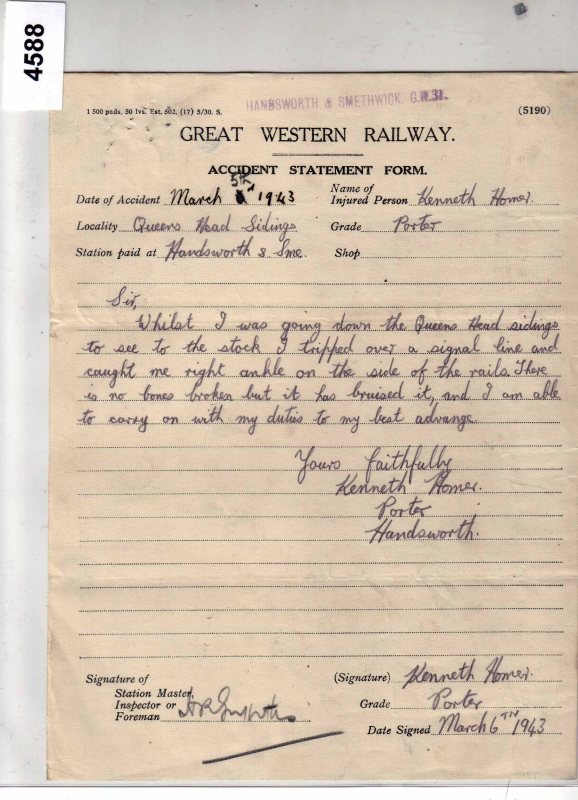 4588
HANDSWORTH & SMETHWICK, G.W.31.
1 500 pnds, 50 lvs. Est. 502. (17) 5/30. S.
(5190)
GREAT WESTERN RAILWAY.
ACCIDENT STATEMENT FORM.
Date of Accident March 5th 1943
Name of Injured Person Kenneth Homer.
Locality Queens Head Sidings
Grade Porter
Station paid at Handsworth & Sme.
Shop
Sir,
Whilst I was going down the Queens Head sidings
to see to the stock I tripped over a signal line and
caught me right ankle on the side of the rails. There
is no bones broken but it has bruised it, and I am able
to carry on with my duties to my best advange.
Yours faithfully
Kenneth Homer.
Porter
Handsworth.
Signature of
Station Master,
Inspector or
Foreman
(Signature) Kenneth Homer.
Grade Porter
Date Signed March 6TH 1943